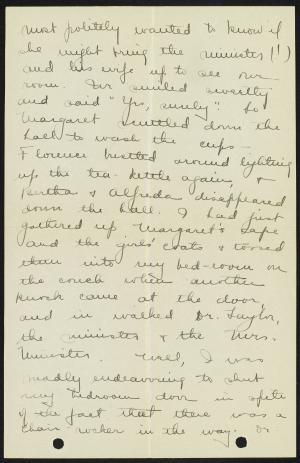 most politely wanted to know if
she might bring the minister (!)
and his wife up to see our
room. We smiled sweetly
and said "Yes, surely". So
Margaret scuttled down the
hall to wash the cups –
Florence hustled around lighting
up the tea-kettle again, &
Bertha & Alfreda disappeared
down the hall. I had just
gathered up Margaret's cape
and the girls' coats & tossed
them into my bed-room on
the couch when another
knock came at the door,
and in walked Dr. Taylor,
the minister & the Mrs.
Minister. Well, I was
madly endeavoring to shut
my bedroom door in spite
of the fact that there was a
chair rocker in the way. Dr.